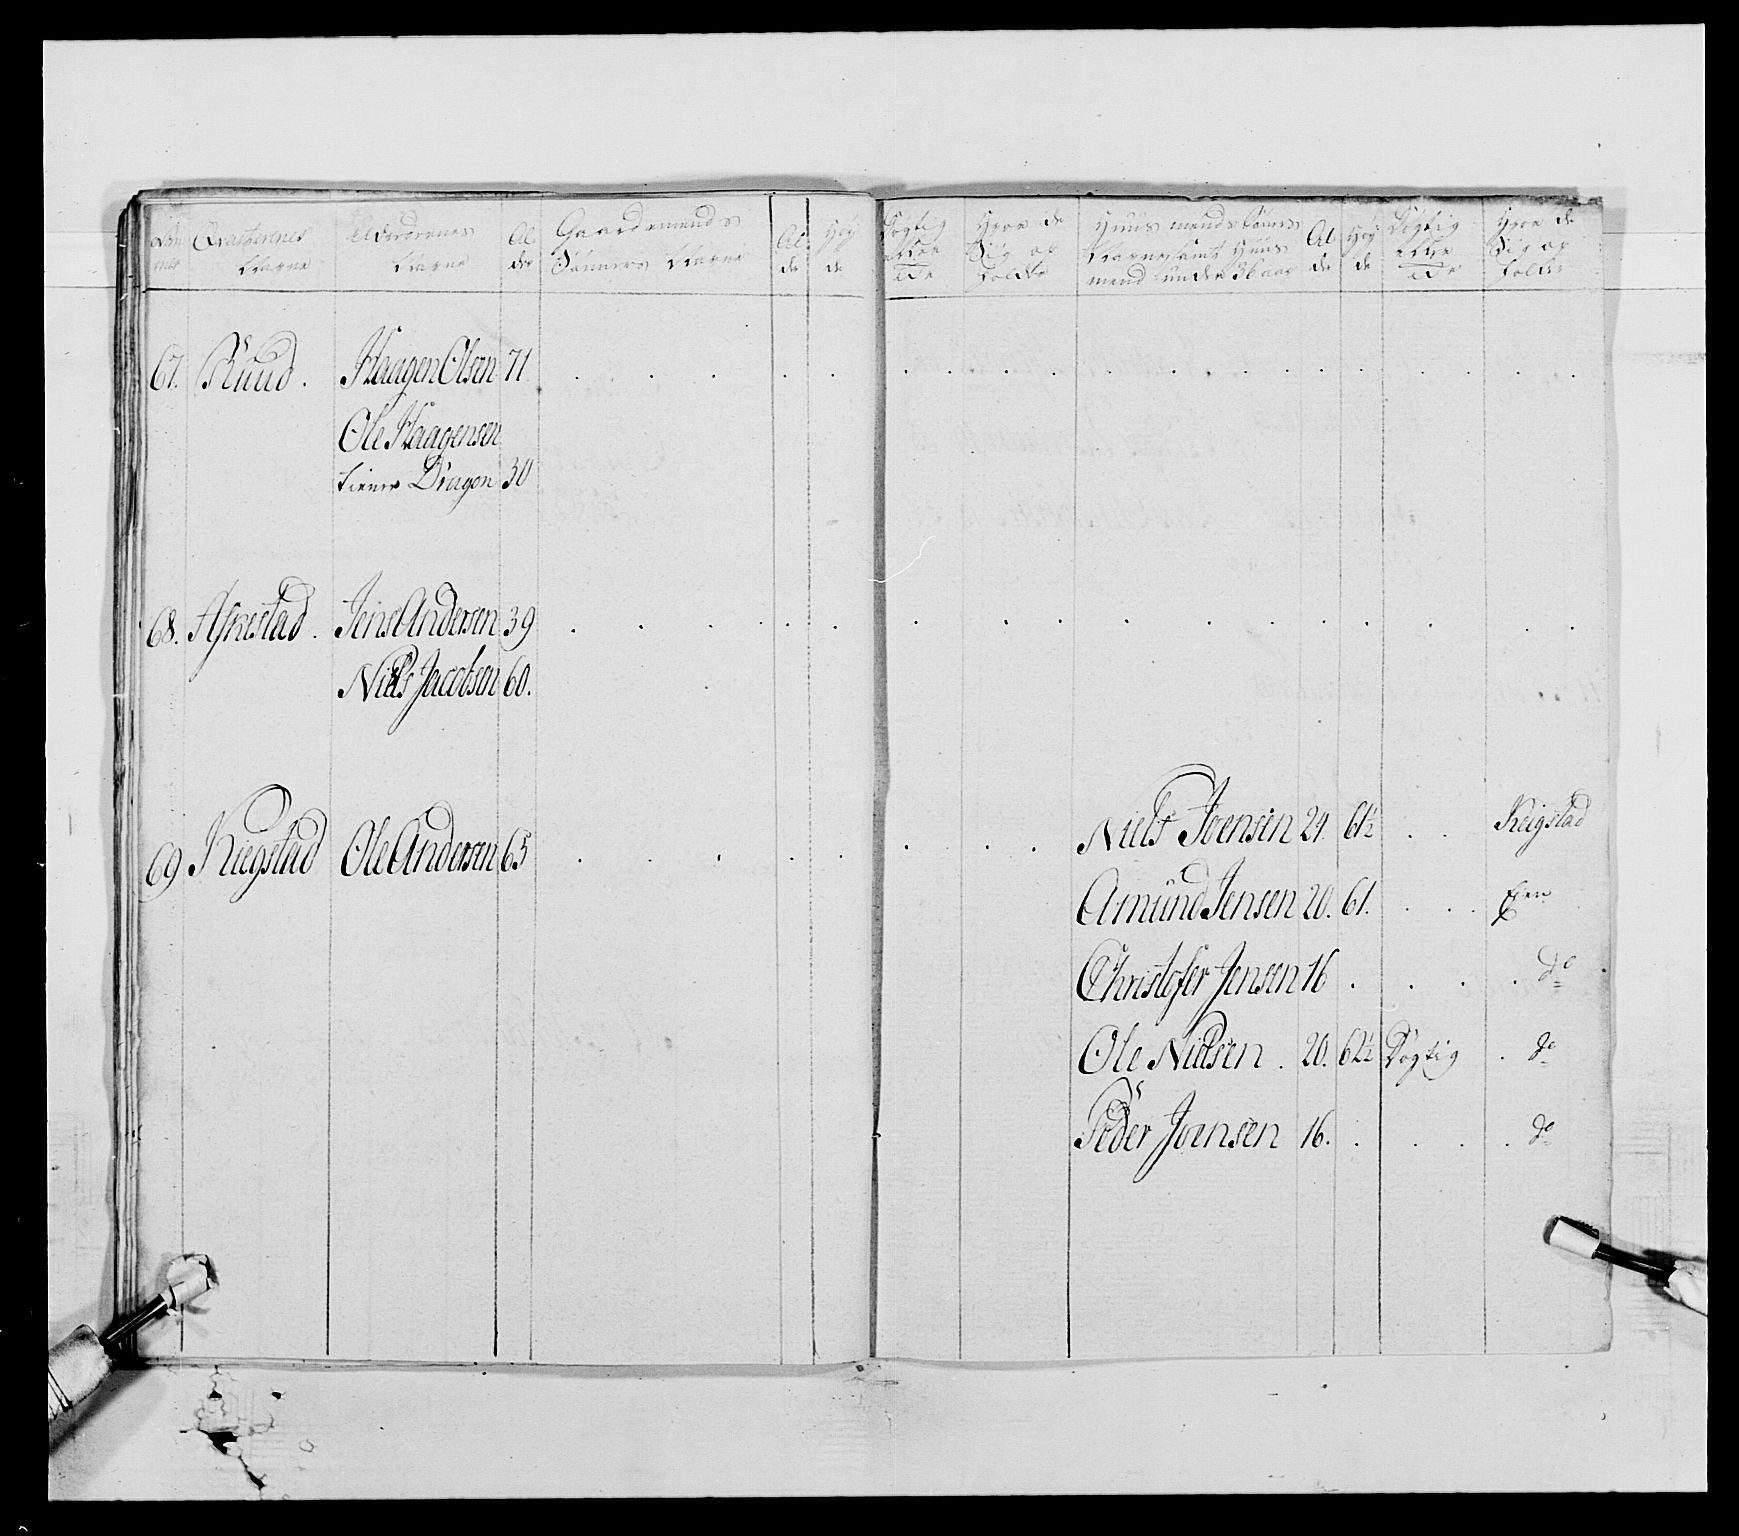 Qvarterenes Navne
Al der
Gaardemænds Sönners Navne
Al de
Höy de
Dögtig eller
Hvor de Sig op holder
Huus mænds Sönners Navne samt Huus mænd under 36 aar
Al de
Höy de
Dögtig eller
Hvor de Sig op holder
67. Ruud . Haagen Olsen 71
Ole Haagensen
tiener Dragon 30
68. Asnestad . Jens Andersen 39
Niels Jacobsen 60.
69 Kiegstad Ole Andersen 65
Niels Joensen 24. 61½ Keigstad
Amund Jensen 20. 61.
Christofer Jensen 16 do
Ole Nielsen . 20. 62½ Dögtig do
Peder Joensen 16. do